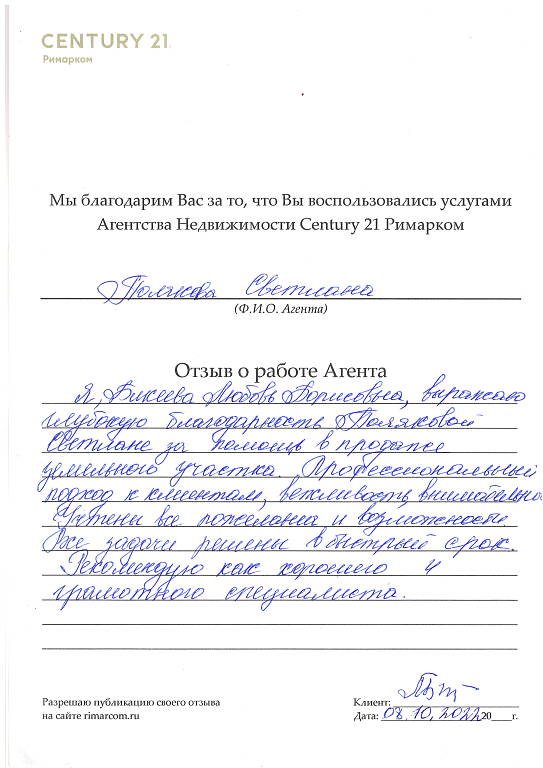 CENTURY 21
Римарком
Мы благодарим Вас за то, что Вы воспользовались услугами
Агентства Недвижимости Century 21 Римарком
Полякова Светлана
(Ф.И.О. Агента)
Отзыв о работе Агента
Я, Бикеева Любовь Борисовна, выражаю
глубокую благодарность Поляковой
Светлане за помощь в продаже
земельного участка. Профессиональный
подход к клиентам, вежливость, внимательно
Учтены все пожелания и возможности.
Все задачи решены в быстрый срок.
Рекомендую как хорошего и
грамотного специалиста.
Разрешаю публикацию своего отзыва
на сайте rimarcom.ru
Клиент:
Дата: 08.10.2022 20 г.